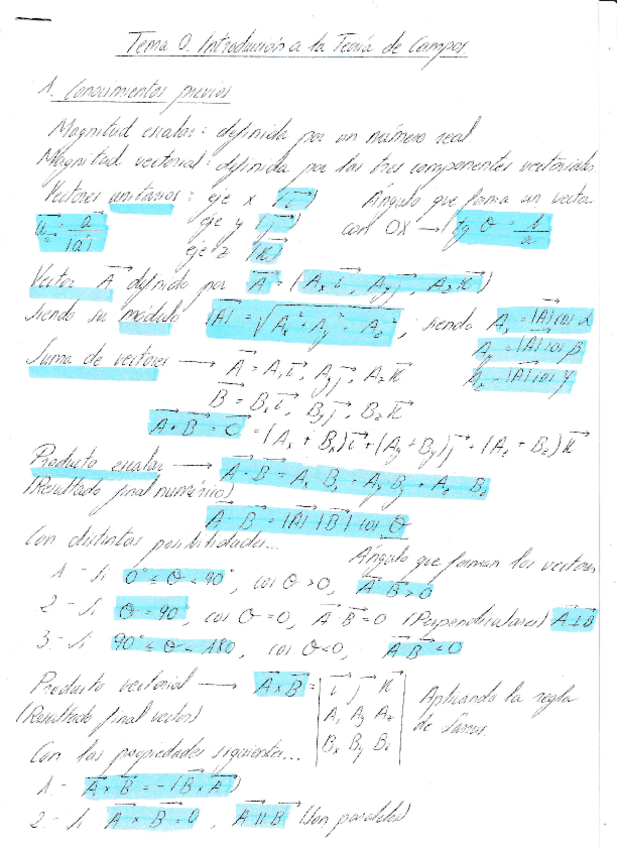 Tema 0. Introducción a la Teoría de Campos
1. Conocimientos previos
Magnitud escalar: definida por un número real
Magnitud vectorial: definida por las tres componentes vectoriales
Vectores unitarios: eje x (i⃗) Ángulo que forma un vector
u⃗ₐ = a⃗/|a⃗| eje y (j⃗) con OX → (tg θ = b/a
eje z (k⃗)
Vector A⃗ definido por A⃗ = (Aₓ i⃗, Aᵧ j⃗, A_z k⃗)
siendo su módulo |A⃗| = √(Aₓ² + Aᵧ² + A_z²), siendo Aₓ = |A⃗| cos α
Aᵧ = |A⃗| cos β
A_z = |A⃗| cos γ
Suma de vectores → A⃗ = Aₓ i⃗, Aᵧ j⃗, A_z k⃗
B⃗ = Bₓ i⃗, Bᵧ j⃗, B_z k⃗
A⃗ + B⃗ = C⃗ = (Aₓ + Bₓ) i⃗ + (Aᵧ + Bᵧ) j⃗ + (A_z + B_z) k⃗
Producto escalar → A⃗ · B⃗ = Aₓ Bₓ + Aᵧ Bᵧ + A_z B_z
(Resultado final numérico)
A⃗ · B⃗ = |A⃗| |B⃗| cos θ
Con distintas posibilidades...
Ángulo que forman los vectores
1 - Si 0° ≤ θ < 90°, cos θ > 0, A⃗ B⃗ > 0
2 - Si θ = 90°, cos θ = 0, A⃗ B⃗ = 0 (Perpendiculares) A⃗ ⊥ B⃗
3 - Si 90° ≤ θ < 180, cos θ < 0, A⃗ B⃗ < 0
Producto vectorial → A⃗ x B⃗ = | i⃗ j⃗ k⃗ | Aplicando la regla
(Resultado final vector) | Aₓ Aᵧ A_z | de Sarrus
| Bₓ Bᵧ B_z |
Con las propiedades siguientes...
1 - A⃗ x B⃗ = -(B⃗ x A⃗)
2 - Si A⃗ x B⃗ = 0, A⃗ || B⃗ (Son paralelos)